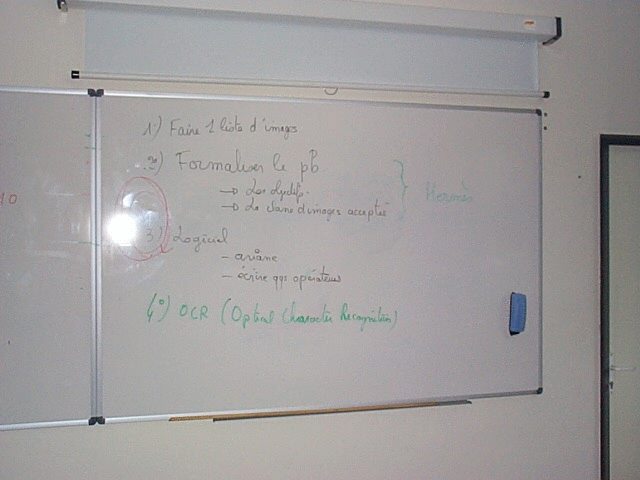 1°) Faire 1 liste d'images
2°) Formaliser le pb
→ Les objectifs.
→ La classe d'images acceptée
Hermès
3°) Logiciel
- ariane
- écrire qqs opérateurs
4°) OCR (Optical Character Recognition)